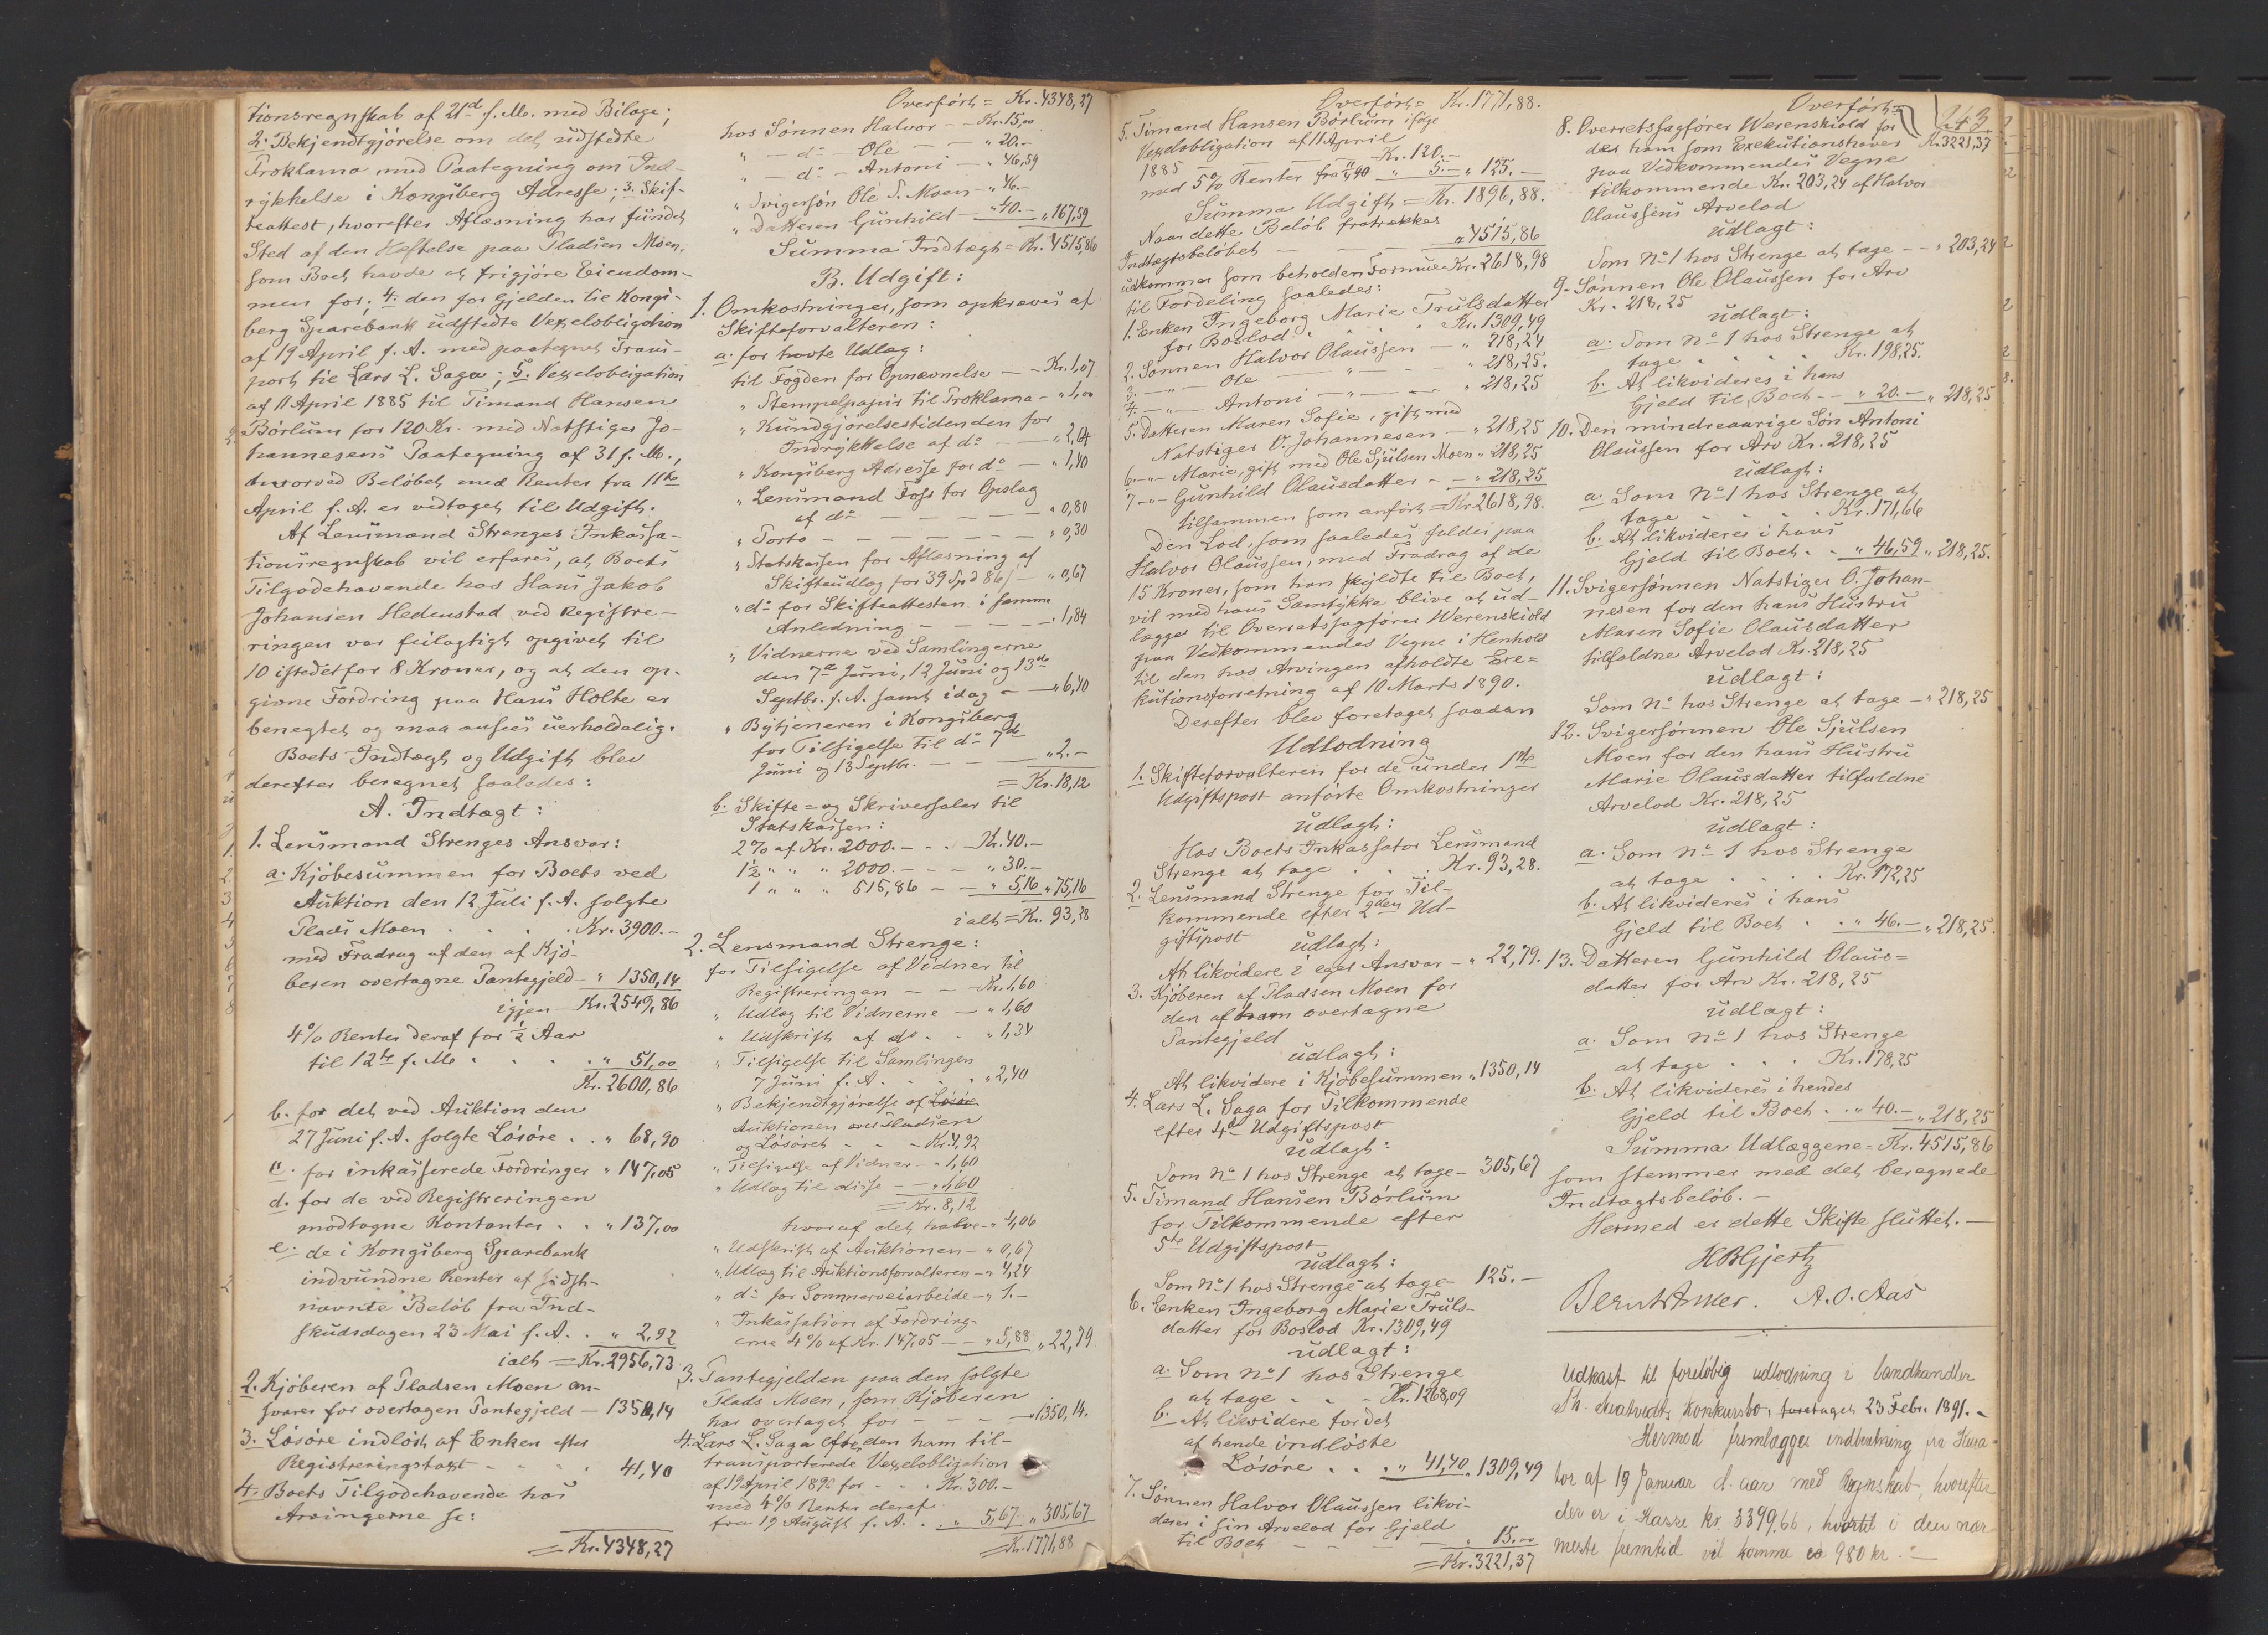 tionsregnskab af 21de f. M. med Bilage;
2. Bekjendtgjörelse om det udstedte
Proklama med Paategning om Ind-
rykkelse i Kongsberg Adresse; 3. Skif-
teattest, hvorefter Aflæsning har fundet
Sted af den Heftelse paa Pladsen Moen,
som Boet havde at frigjöre Eiendom-
men for; 4. den for Gjelden til Kongs-
berg Sparebank udstedte Vexelobligation
af 19 April f. A. med paategnet Trans-
port til Lars L. Saga; 5. Vexelobligation
af 11 April 1885 til Timand Hansen
Börlum for 120 Kr. med Natstiger Jo-
hannesens Paategning af 31 f. M.,
hvorved Beløbet med Renter fra 11te
April f. A. er vedtaget til Udgift.
Af Lensmand Strenges Inkassa-
tionsregnskab vil erfares, at Boets
Tilgodehavende hos Hans Jakob
Johansen Hedenstad ved Registre-
ringen var feilagtigt opgivet til
10 istedetfor 8 Kroner, og at den op-
givne Fordring paa Hans Holte er
benegtet og maa ansees uerholdelig.
Boets Indtægt og Udgift blev
derefter beregnet saaledes:
A. Indtægt:
1. Lensmand Strenges Ansvar:
a. Kjöbesummen for Boets ved
Auktion den 12 Juli f. A. solgte
Plads Moen . . . . Kr. 3900.-
med Fradrag af den af Kjö-
beren overtagne Pantegjeld - " 1350,14
igjen Kr. 2549,86
4% Renter deraf for 1/2 Aar
til 12te f. M. . . . . " 51,00
Kr. 2600,86
b. for det ved Auktion den
27 Juni f. A. solgte Lösöre . . " 68,90
c. for inkasserede Fordringer " 147,05
d. for de ved Registreringen
modtagne Kontanter . . " 137,00
e. de i Kongsberg Sparebank
indvundne Renter af sidst-
nævnte Belöb fra Ind-
skudsdagen 23 Mai f. A. . " 2,92
ialt = Kr. 2956,73
2. Kjöberen af Pladsen Moen an-
svarer for overtagen Pantegjeld - 1350,14
3. Lösöre indlöst af Enken efter
Registreringstaxt - . . . 41,40
4. Boets Tilgodehavende hos
Arvingerne sc:
= Kr. 4348,27
Overfört = Kr. 4348,27
hos Sönnen Halvor - - Kr. 15,00
" - do - Ole - - " 20.-
" - do - Antoni - " 46,59
" Svigersön Ole S. Moen - " 46.-
" Datteren Gunhild - " 40.- " 167,59
Summa Indtægt = Kr. 4515,86
B. Udgift:
1. Omkostninger, som opkræves af
Skifteforvalteren:
a. for havte Udlæg:
til Fogden for Opnævnelse - - Kr. 1,07
" Stempelpapir til Proklama - " 1,00
" Kundgjörelsestidenden for
Indrykkelse af do - - " 2,04
" Kongsberg Adresse for do - " 1,40
" Lensmand Foss for Opslag
af do - - - - - " 0,80
" Porto - - - - - - " 0,30
" Statskassen for Aflæsning af
Skifteudlæg for 39 Spd 86 s - " 0,67
" do for Skifteattesten i samme
Anledning - - - - - " 1,84
" Vidnerne ved Samlingerne
den 7de Juni, 12 Juni og 13de
Septbr. f. A. samt idag - - " 6,40
" Bytjeneren i Kongsberg
for Tilsigelse til do 7de
Juni og 13 Septbr. - - - " 2.-
= Kr. 18,12
b. Skifte- og Skriversalær til
Statskassen:
2% af Kr. 2000.- . . - Kr. 40.-
1 1/2 " " " 2000.- - - " 30.-
1 " " " 515,86 - - " 5,16 " 75,16
ialt = Kr. 93,28
2. Lensmand Strenge:
for Tilsigelse af Vidner til
Registreringen - - Kr. 1,60
" Udlæg til Vidnerne - " 1,60
" Udskrift af do . . " 1,34
" Tilsigelse til Samlingen
7 Juni f. A. . . . . " 2,40
" Bekjendtgjörelse af Lösöre
Auktionen over Pladsen
og Lösöret - - - Kr. 4,92
" Tilsigelse af Vidner - " 1,60
" Udlæg til disse - - " 1,60
= Kr. 8,12
hvoraf det halve - " 4,06
" Udskrift af Auktionen - " 0,67
" Udlæg til Auktionsforvalteren - " 4,24
" do for Sommerveiarbeide - " 1.-
" Inkassation af Fordring-
erne 4% af Kr. 147,05 - - " 5,88 " 22,79
3. Pantegjelden paa den solgte
Plads Moen, som Kjöberen
har overtaget for - - - " 1350,14.
4. Lars L. Saga efter den ham til-
transporterede Vexelobligation
af 19 April 1890 for - . Kr. 300.-
med 4% Renter deraf
fra 19 August f. A. . . " 5,67 " 305,67
= Kr. 1771,88
Overfört = Kr. 1771,88.
5. Timand Hansen Börlum ifölge
Vexelobligation af 11 April
1885 - - - Kr. 120.-
med 5% Renter fra 11/4 90 " 5.- " 125.-
Summa Udgift = Kr. 1896,88.
Naar dette Belöb fratrækkes
Indtægtsbelöbet - - - " 4515,86
udkommer som beholden Formue Kr. 2618,98
til Fordeling saaledes:
1. Enken Ingeborg Marie Trulsdatter
for Boslod . . . . Kr. 1309,49
2. Sönnen Halvor Olaussen - " 218,24
3. - " - Ole - " - - " 218,25.
4. - " - Antoni - " - - " 218,25
5. Datteren Maren Sofie, gift med
Natstiger O. Johannesen - " 218,25
6. - " - Marie, gift med Ole Sjulsen Moen " 218,25
7 - " - Gunhild Olausdatter - - " 218,25
tilsammen som anfört = Kr. 2618,98.
Den Lod, som saaledes falder paa
Halvor Olaussen, med Fradrag af de
15 Kroner, som han skyldte til Boet,
vil med hans Samtykke blive at ud-
lægge til Overretssagförer Werenskiold
paa Vedkommendes Vegne i Henhold
til den hos Arvingen afholdte Exe-
kutionsforretning af 10 Marts 1890.
Derefter blev foretaget saadan
Udlodning
1. Skifteforvalteren for de under 1ste
Udgiftspost anförte Omkostninger
udlagt:
Hos Boets Inkassator Lensmand
Strenge at tage . . . Kr. 93,28.
2. Lensmand Strenge for Til-
kommende efter 2den Ud-
giftspost
udlagt:
At likvidere i eget Ansvar - " 22,79.
3. Kjöberen af Pladsen Moen for
den af ham overtagne
Pantegjeld
udlagt:
At likvidere i Kjöbesummen " 1350,14
4. Lars L. Saga for Tilkommende
efter 4de Udgiftspost
udlagt:
Som No 1 hos Strenge at tage - 305,67
5. Timand Hansen Börlum
for Tilkommende efter
5te Udgiftspost
udlagt:
Som No 1 hos Strenge at tage - 125.-
6. Enken Ingeborg Marie Truls-
datter for Boslod Kr. 1309,49
udlagt:
a. Som No 1 hos Strenge
at tage - . - Kr. 1268,09
b. At likvidere for det
af hende indlöste
Lösöre . . . " 41,40 " 1309,49
7. Sönnen Halvor Olaussen likvi-
deres i sin Arvelod for Gjeld
til Boet - - - - - " 15.00
= Kr. 3221,37
243
Overfört =
Kr. 3221,37
8. Overretssagförer Werenskiold for
det ham som Exekutionshaver
paa Vedkommendes Vegne
tilkommende Kr. 203,24 af Halvor
Olaussens Arvelod
udlagt:
Som No 1 hos Strenge at tage - - " 203,24
9. Sönnen Ole Olaussen for Arv
Kr. 218,25
udlagt:
a. Som No 1 hos Strenge at
tage . . . . Kr. 198,25.
b. At likvideres i hans
Gjeld til Boet - - " 20.- " 218,25
10. Den mindreaarige Sön Antoni
Olaussen for Arv Kr. 218,25
udlagt:
a. Som No 1 hos Strenge at
tage . . . . Kr. 171,66
b. At likvideres i hans
Gjeld til Boet . . " 46,59 " 218,25.
11. Svigersönnen Natstiger O. Johan-
nesen for den hans Hustru
Maren Sofie Olausdatter
tilfaldne Arvelod Kr. 218,25
udlagt:
Som No hos Strenge at tage - " 218,25
12. Svigersönnen Ole Sjulsen
Moen for den hans Hustru
Marie Olausdatter tilfaldne
Arvelod Kr. 218,25
udlagt:
a. Som No 1 hos Strenge
at tage . . . . Kr. 172,25
b. At likvideres i hans
Gjeld til Boet . . " 46.- " 218,25.
13. Datteren Gunhild Olaus-
datter for Arv Kr. 218,25
udlagt:
a. Som No 1 hos Strenge
at tage . . Kr. 178,25
b. At likvideres i hendes
Gjeld til Boet . . " 40.- " 218,25
Summa Udlæggene = Kr. 4515,86
som stemmer med det beregnede
Indtægtsbelöb. -
Hermed er dette Skifte sluttet. -
HBGjertz
Bernt Anker. A. O. Aas
Udkast til foreløbig udlodning i landhandler
Th. konkursbo, foretaget 23 Febr. 1891. -
Hermed fremlægges indberetning fra Kura-
tor af 19 Januar d. aar med Regnskab, hvorefter
der er i Kasse kr. 3399.66, hvortil i den nær
meste fremtid vil komme ca 980 kr. -